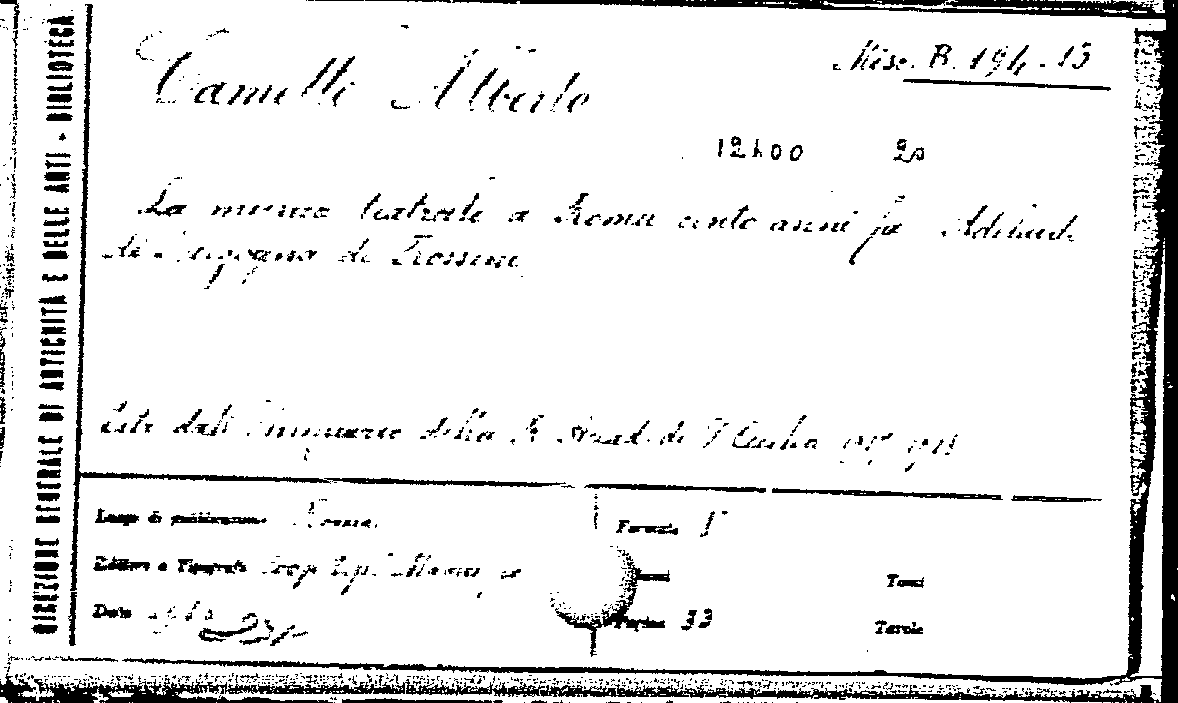 DIREZIONE GENERALE DI ANTICHITÀ E DELLE ARTI - BIBLIOTECA
Misc. B. 194. 13
Cametti Alberto
12400 20
La musica teatrale a Roma cento anni fa Adelaide
di Borgogna di Rossini
Estr. dall'Annuario della R. Accad. di S. Cecilia 1917 1918
Luogo di pubblicazione Roma
Formato 8°
Editore o Tipografo Coop. tip. Manuzio
Volumi
Tomi
Data
Pagine 33
Tavole